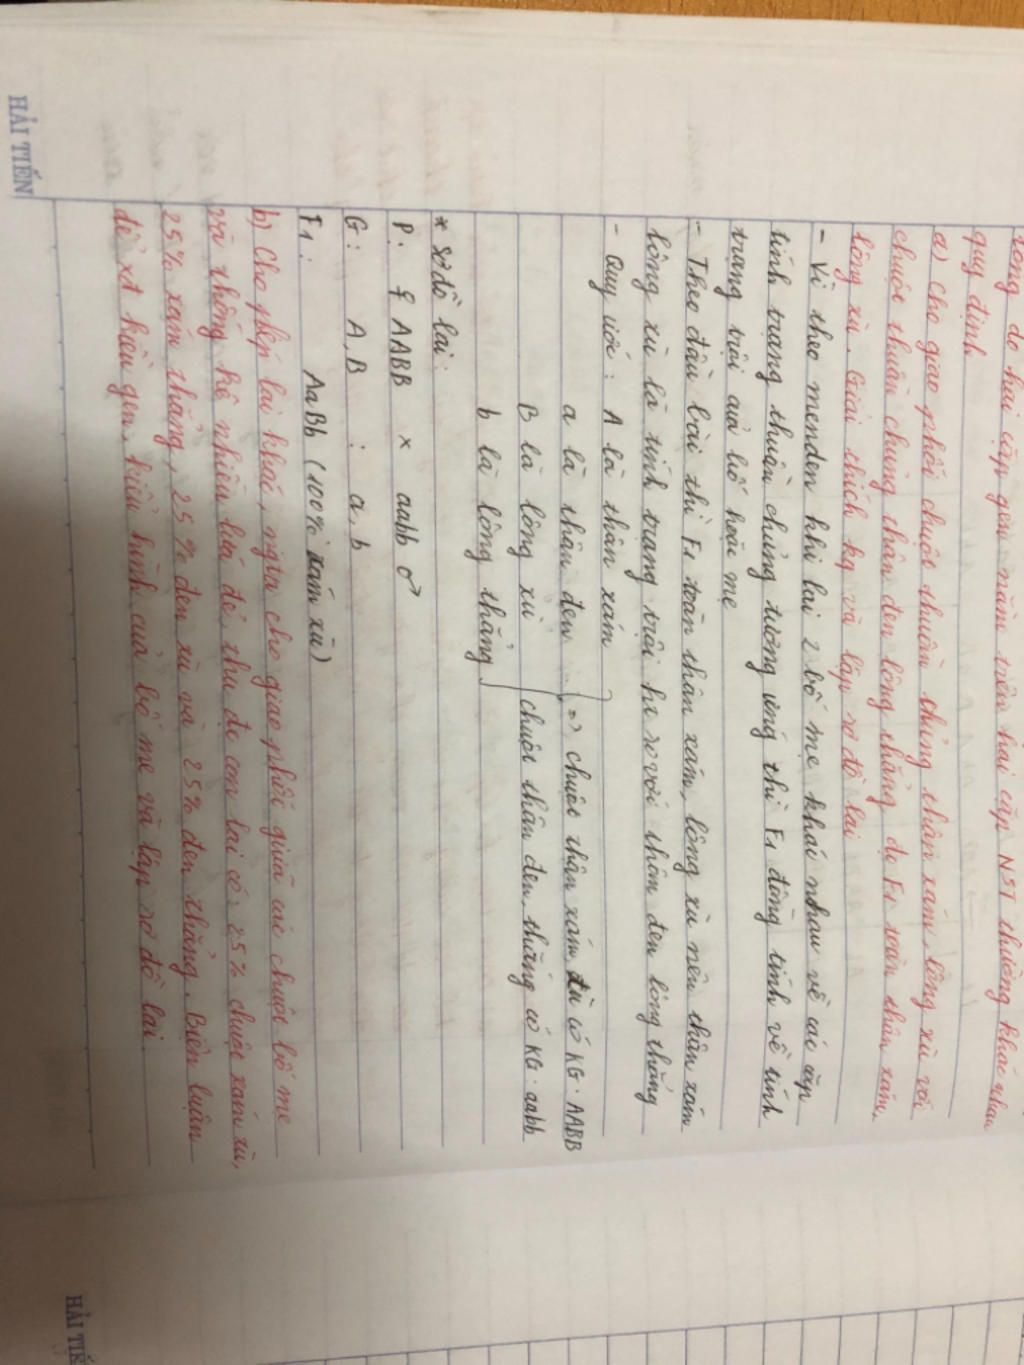 lông do hai cặp gen nằm trên hai cặp NST thường khác nhau
quy định.
a) Cho giao phối chuột thuần chủng thân xám, lông xù với
chuột thuần chủng thân đen lông thẳng, đc F1 toàn thân xám,
lông xù. Giải thích kq và lập sơ đồ lai
- Vì theo menden khi lai 2 bố mẹ khác nhau về các cặp
tính trạng thuần chủng tương ứng thì F1 đồng tính về tính
trạng trội của bố hoặc mẹ
- Theo đầu bài thì F1 toàn thân xám, lông xù nên thân xám
lông xù là tính trạng trội ht so với thân đen lông thẳng
- Quy ước: A là thân xám
a là thân đen => chuột thân xám, xù có KG: AABB
B là lông xù chuột thân đen, thẳng có KG: aabb
b là lông thẳng
* Sơ đồ lai:
P: ♀ AABB × aabb ♂
G: A,B : a,b
F1: AaBb (100% xám xù)
b) Cho phép lai khác, ngta cho giao phối giữa các chuột bố mẹ
và thống kê nhiều lứa đẻ, thu đc con lai có: 25% chuột xám xù,
25% xám thẳng, 25% đen xù và 25% đen thẳng. Biện luận
để xđ kiểu gen, kiểu hình của bố mẹ và lập sơ đồ lai.
HẢI TIẾN
HẢI TIẾ